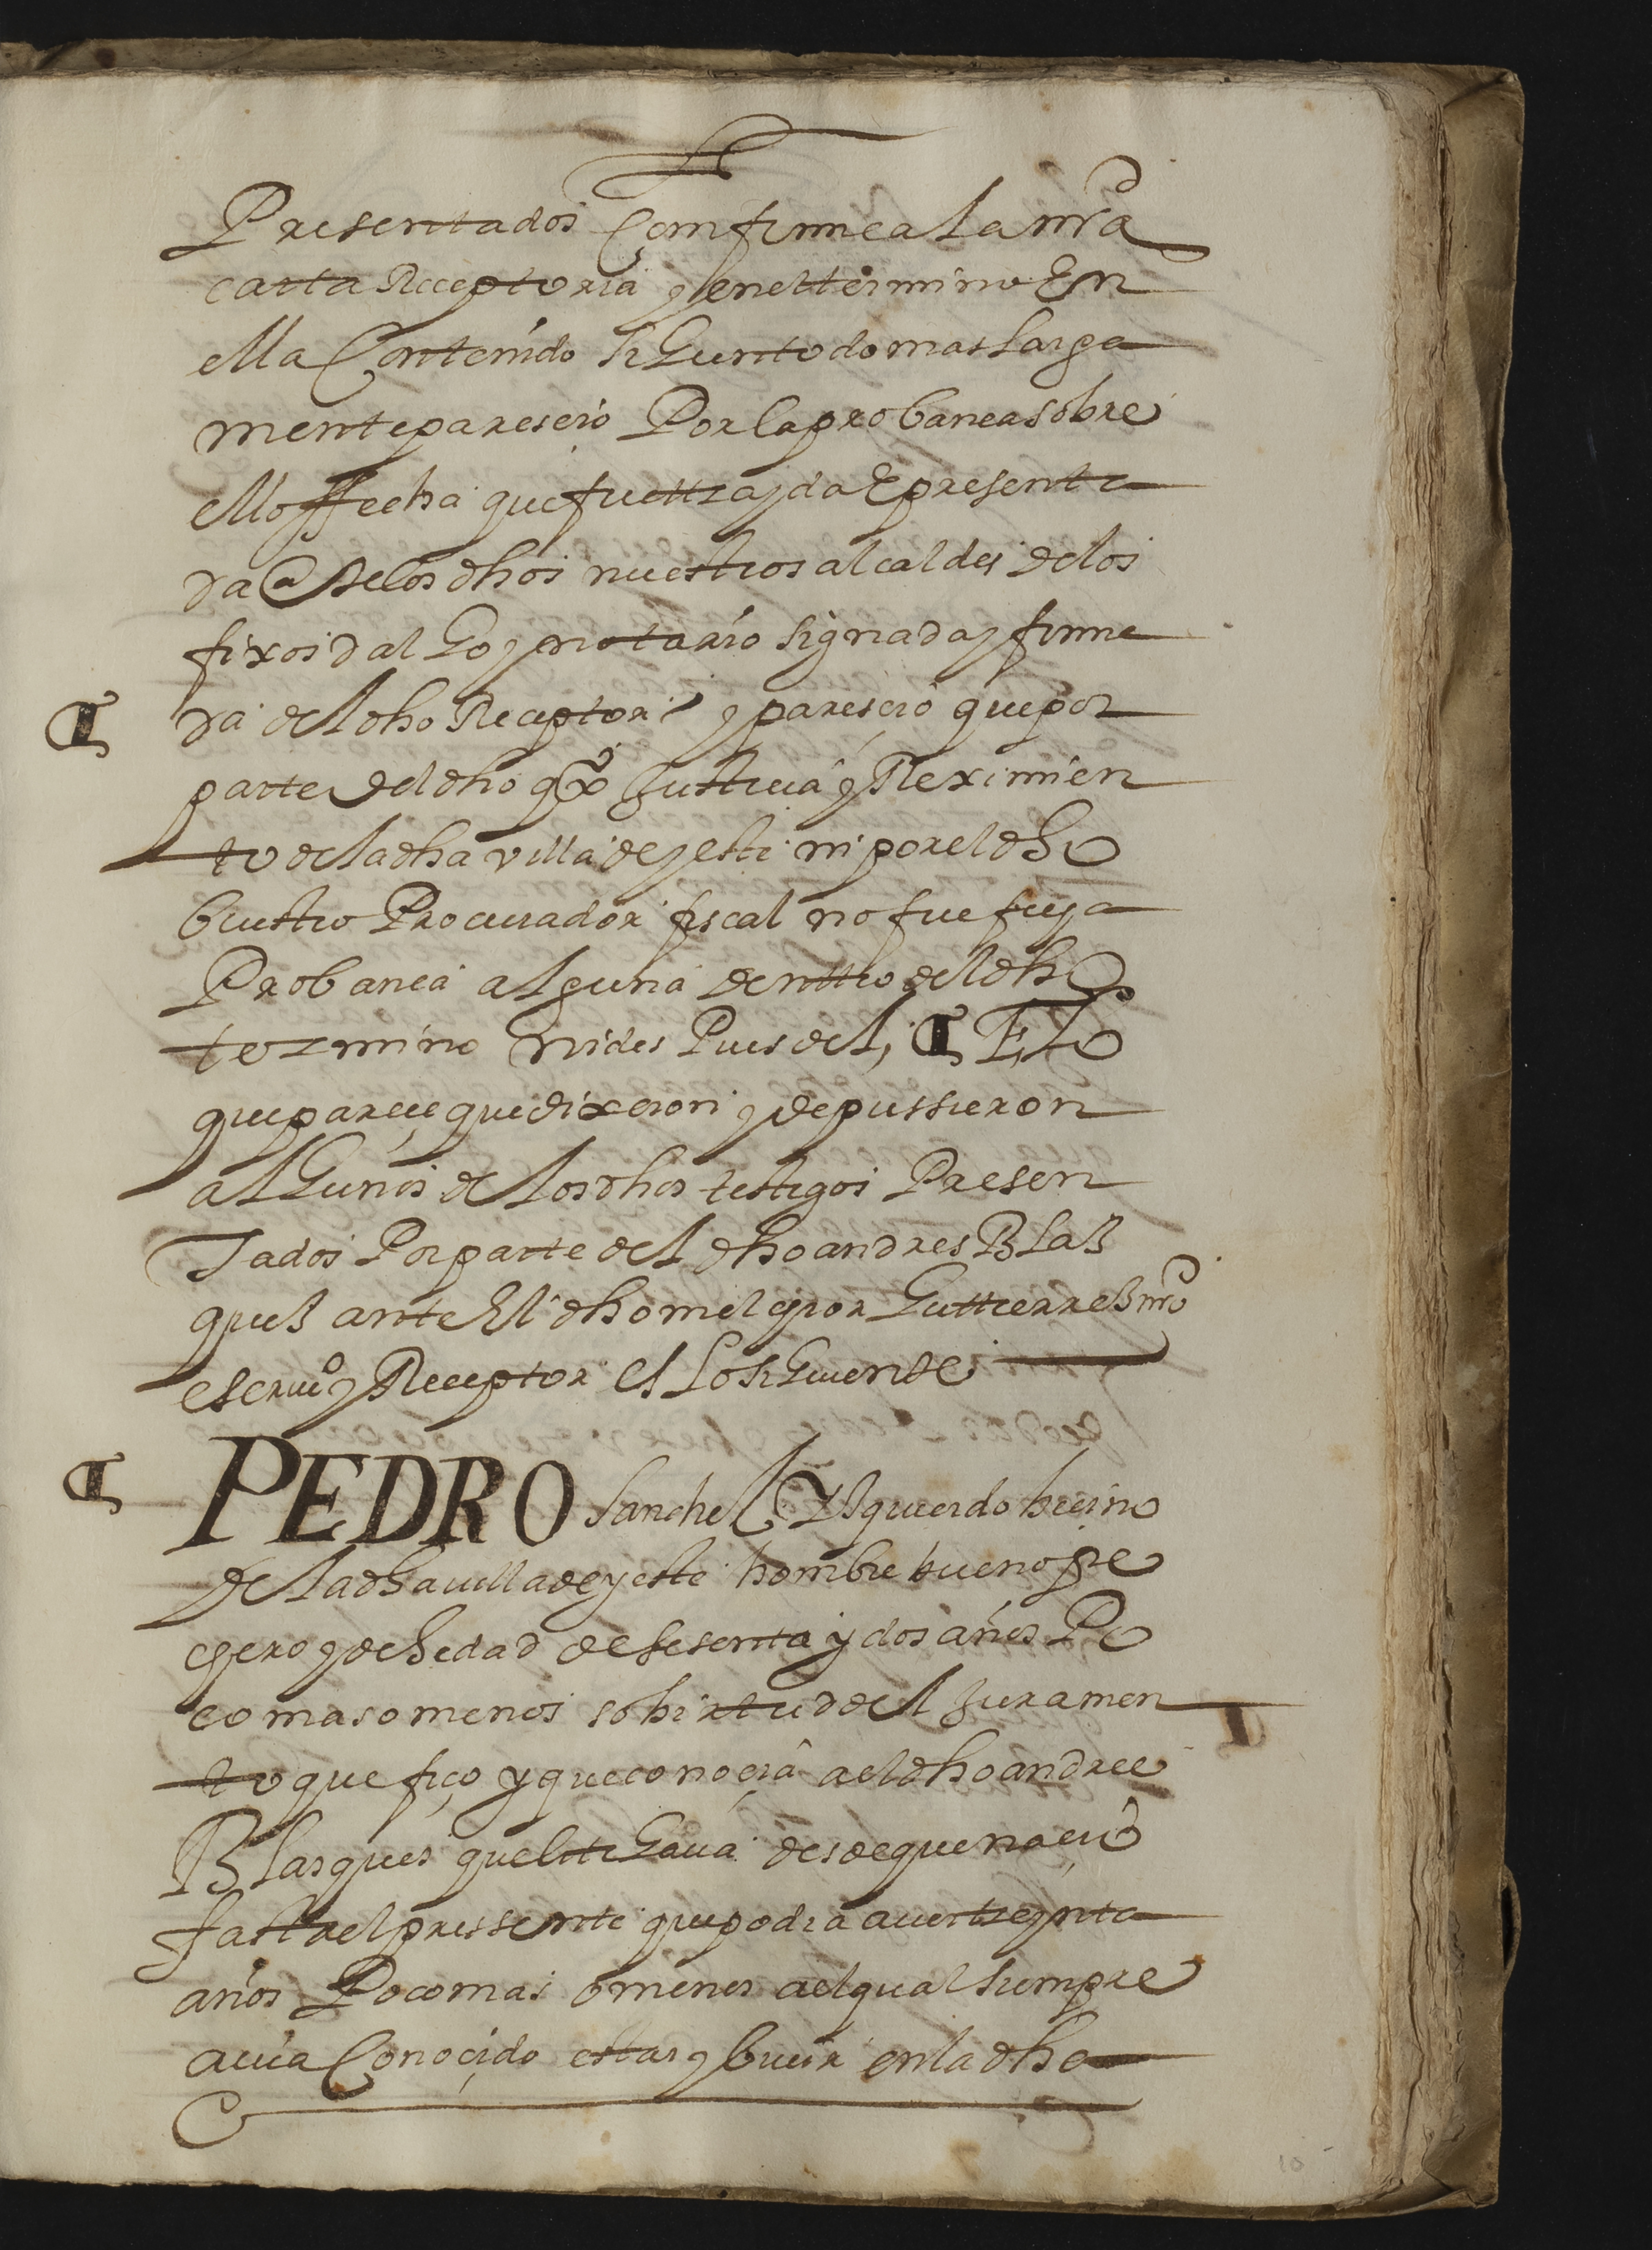 Presentados Comfirme a la nra
carta Receptoria y en el termino En
ella Contenido segun todo mas larga
mente parescio Por la provança sobre
ello ffecha que fue ttrayda E presenta
da @nte los dhos nuestros alcaldes de los
fixos dalgo y notario signada y firma
da del dho Receptor y parescio que por
parte del dho qº Justicia y Reximien
to de la dha villa de yeste ni por el dho
buestro Procurador fiscal no fue fecha
Probança alguna denttro del dho
termino ni des Pues del, ¶ E, Lo
que parece que dixeron y depussieron
algunos de los dhos testigos Presen
Tados Por parte del dho andres Blas
ques ante El dho melchior Guttierres nro
escriuº y Receptor es Lo siguiente
¶ PEDRO sanches Ysquierdo becino
de la dha villa de yeste hombre bueno pe
chero y de hedad de sesenta y dos años Po
co mas o menos so birtud del juramen
to que fiço y que conoçia a el dho andres
Blasques que litigaua desde que naçio
fasta el pressente que podia auer treynta
años Poco mas o menos a el qual siempre
auia Conoçido estar y biuir en la dha
10